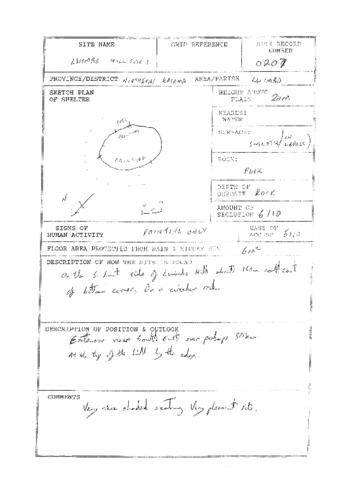 SITE NAME
GRID REFERENCE
SITE RECORD NUMBER
0207
PROVINCE/DISTRICT NORTHERN KASAMA AREA/PARISH
SKETCH PLAN OF SHELTER
HEIGHT ABOVE PLAIN 20m
NEAREST WATER
SURFACE:
ROCK:
DEPTH OF DEPOSIT ROCK
PAINTING
N
AMOUNT OF SECLUSION 6/10
SIGNS OF HUMAN ACTIVITY PAINTING ONLY
EASE OF ACCESS 5/10
FLOOR AREA PROTECTED FROM RAIN & MIDDAY SUN 6m²
DESCRIPTION OF HOW THE SITE IS FOUND
On the side of Hill about
of bottom corner. On a circular rock.
DESCRIPTION OF POSITION & OUTLOOK
Extensive views South East over perhaps
At the top of the hill by the edge.
COMMENTS
Very nice shaded seating. Very pleasant site.